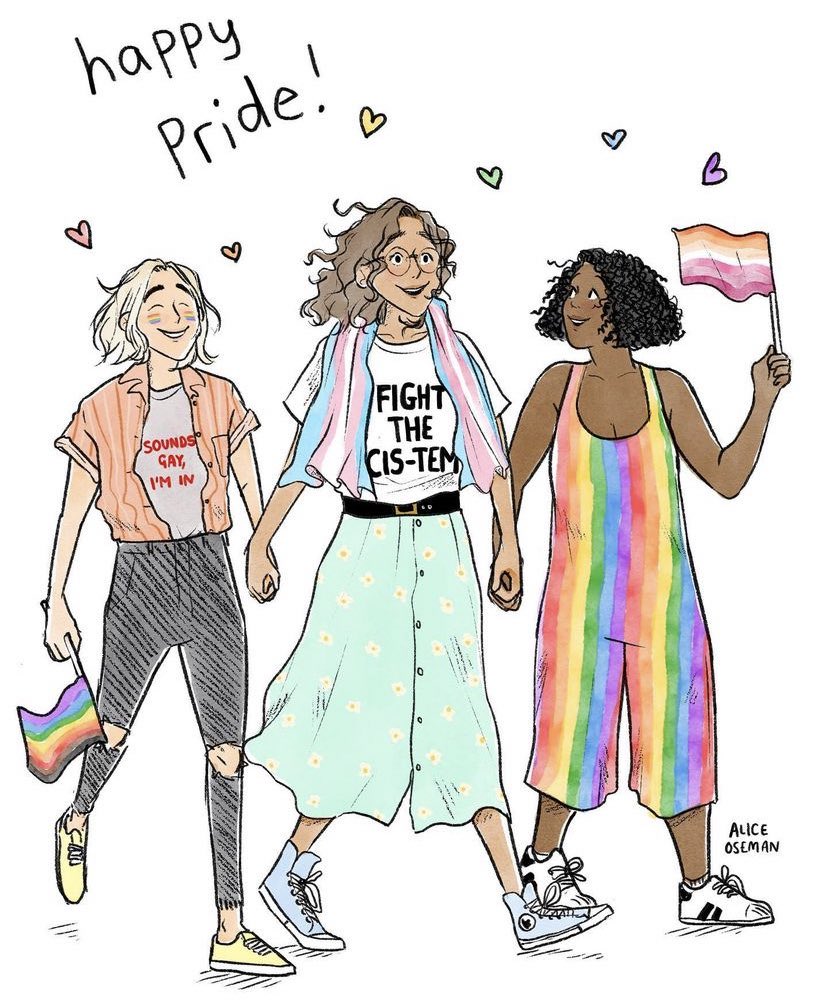 happy
Pride!
SOUNDS
GAY,
I'M IN
FIGHT
THE
CIS-TEM
ALICE
OSEMAN